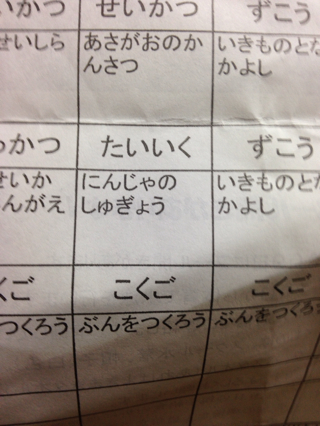 いかつ せいかつ ずこう
せいしら あさがおのか いきものとな
んさつ かよし
かつ たいいく ずこう
せいか にんじゃの いきものとな
んがえ しゅぎょう かよし
くご こくご こくご
つくろう ぶんをつくろう ぶんをつくろ